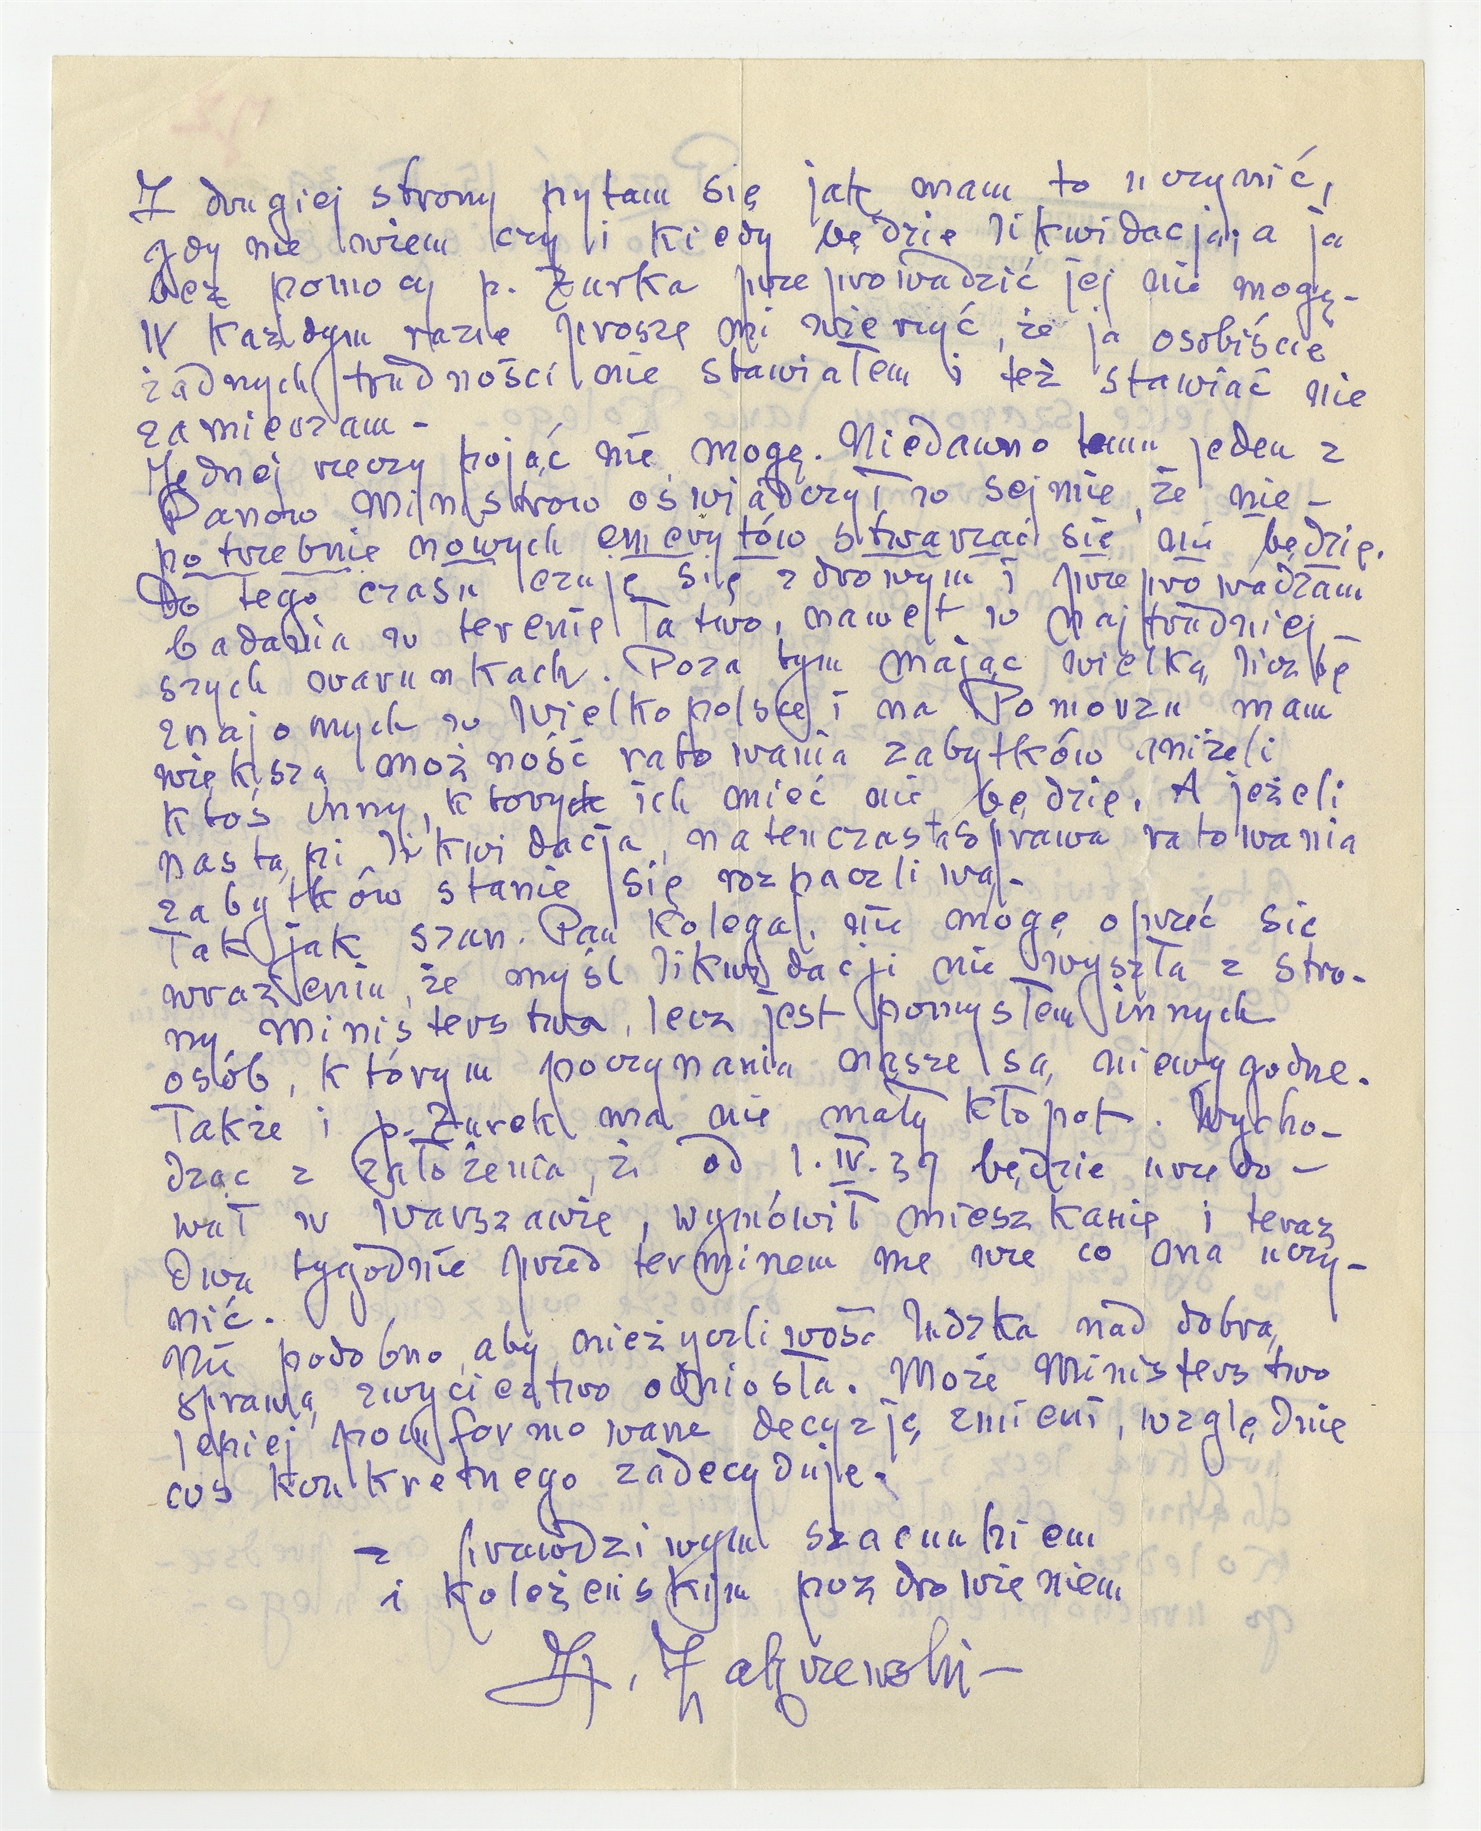 Z drugiej strony pytam się jak mam to uczynić,
gdy nie wiem czy i kiedy będzie likwidacja, a ja
bez pomocy p. Żurka przeprowadzić jej nie mogę.-
W każdym razie proszę mi wierzyć, że ja osobiście
żadnych trudności nie stawiałem i też stawiać nie
zamierzam -
Jednej rzeczy pojąć nie mogę. Niedawno temu jeden z
Panów Ministrów oświadczył w sejmie, że nie-
potrzebnie nowych emerytów stwarzać się nie będzie.
Do tego czasu czuję się zdrowym i przeprowadzam
badania w terenie łatwo, nawet w najtrudniej-
szych warunkach. Poza tym mając wielką liczbę
znajomych w Wielkopolsce i na Pomorzu mam
większą możność ratowania zabytków aniżeli
ktoś inny, których ich mieć nie będzie. A jeżeli
nastąpi likwidacja, natenczas sprawa ratowania
zabytków stanie się rozpaczliwa.-
Tak jak szan. Pan Kolega, nie mogę oprzeć się
wrażeniu, że myśl likwidacji nie wyszła z stro-
ny Ministerstwa, lecz jest pomysłem innych
osób, którym poczynania nasze są niewygodne.
Także i p. Żurek ma nie mały kłopot. Wycho-
dząc z założenia, że od 1.IV.39 będzie urzędo-
wał w Warszawie, wymówił mieszkanie i teraz
dwa tygodnie przed terminem nie wie co ma uczy-
nić.
Nie podobno, aby nieżyczliwość ludzka nad dobrą
sprawą zwycięztwo odniosła. Może Ministerstwo
lepiej poinformowane decyzję zmieni, względnie
coś konkretnego zadecyduje.
z prawdziwym szacunkiem
i koleżeńskim pozdrowieniem
Z. Zakrzewski -